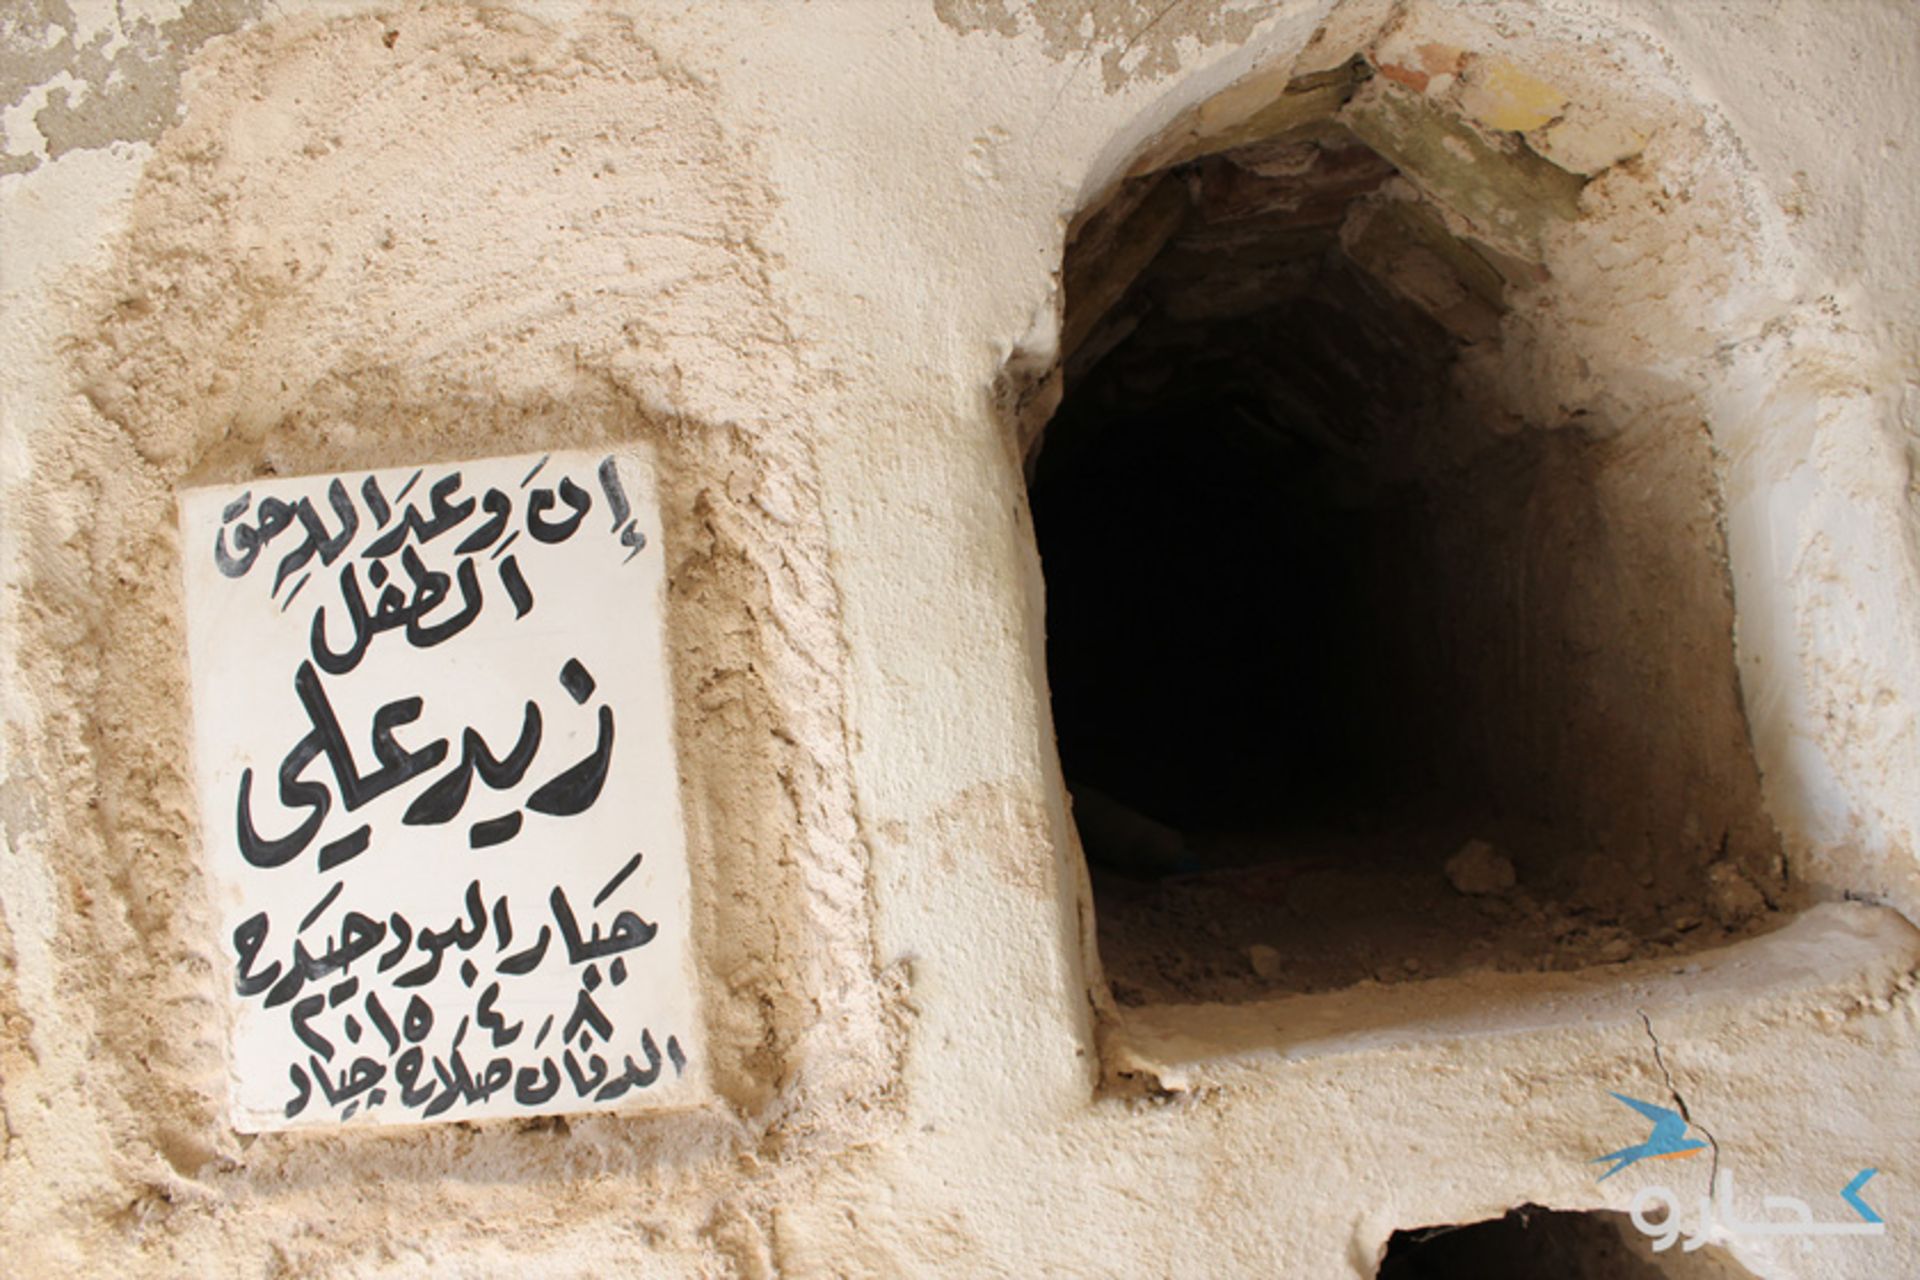 إنَ وَعدَ اللهِ حقَ
الطفل
زيد علي
جبار البودحيدح
٨ ٤ ٢٠١٥
الدفان صلاح جياد
کجارو